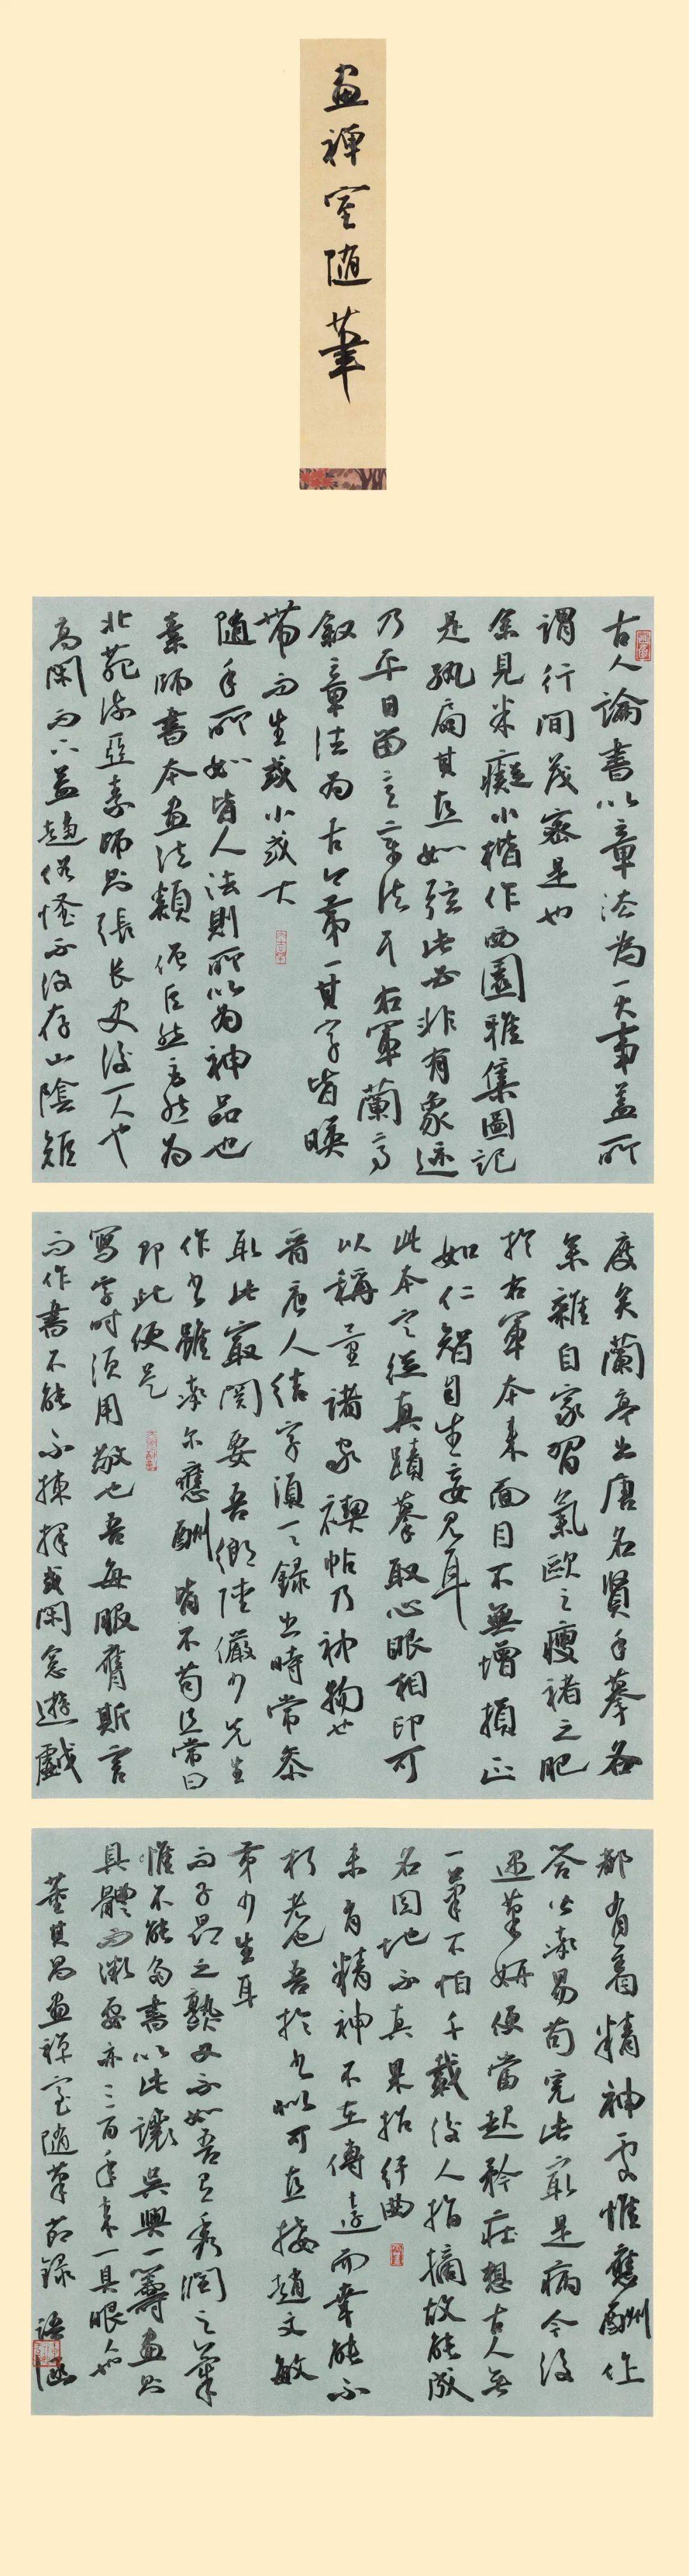 画禅室随筆
古人論書以章法為一大事盖所
謂行間茂密是也
余見米癡小楷作西園雅集圖記
是紈扇其直如弦此必非有象迹
乃平日留意章法耳右軍蘭亭
叙章法為古今第一其字皆暎
带而生或小或大
随手所如皆入法則所以為神品也
素師書本画法類僧巨然巨然為
北苑流亚素師則張長史後一人也
高閑而下益趋俗怪不復存山陰矩
度矣蘭亭出唐名賢手摹各
条雜自家習氣歐之瘦褚之肥
於右軍本来面目不無增損正
如仁智自生妄見耳
此本定從真蹟摹取心眼相印可
以稱量諸家禊帖乃神物也
晋唐人結字須一一錄出時常参
取此寂関要吾鄉陸儼少先生
作書雖率尔應酬皆不苟且常曰
即此便是
寫字时須用敬也吾每服膺斯言
而作書不能不揀择或閑窓遊戲
都有着精神處惟應酬作
答皆率易苟完此寂是病今後
遇筆妍便當起矜莊想古人無
一筆不怕千載後人指摘故能成
名因地不真果招紆曲
未有精神不在傳遠而幸能不
朽者也吾於書似可直接趙文敏
第少生耳
而子昂之熟又不如吾有秀潤之筆
惟不能多書以此讓吳興一籌画則
具體而微要亦三百年来一具眼人也
董其昌画禅室随筆節錄